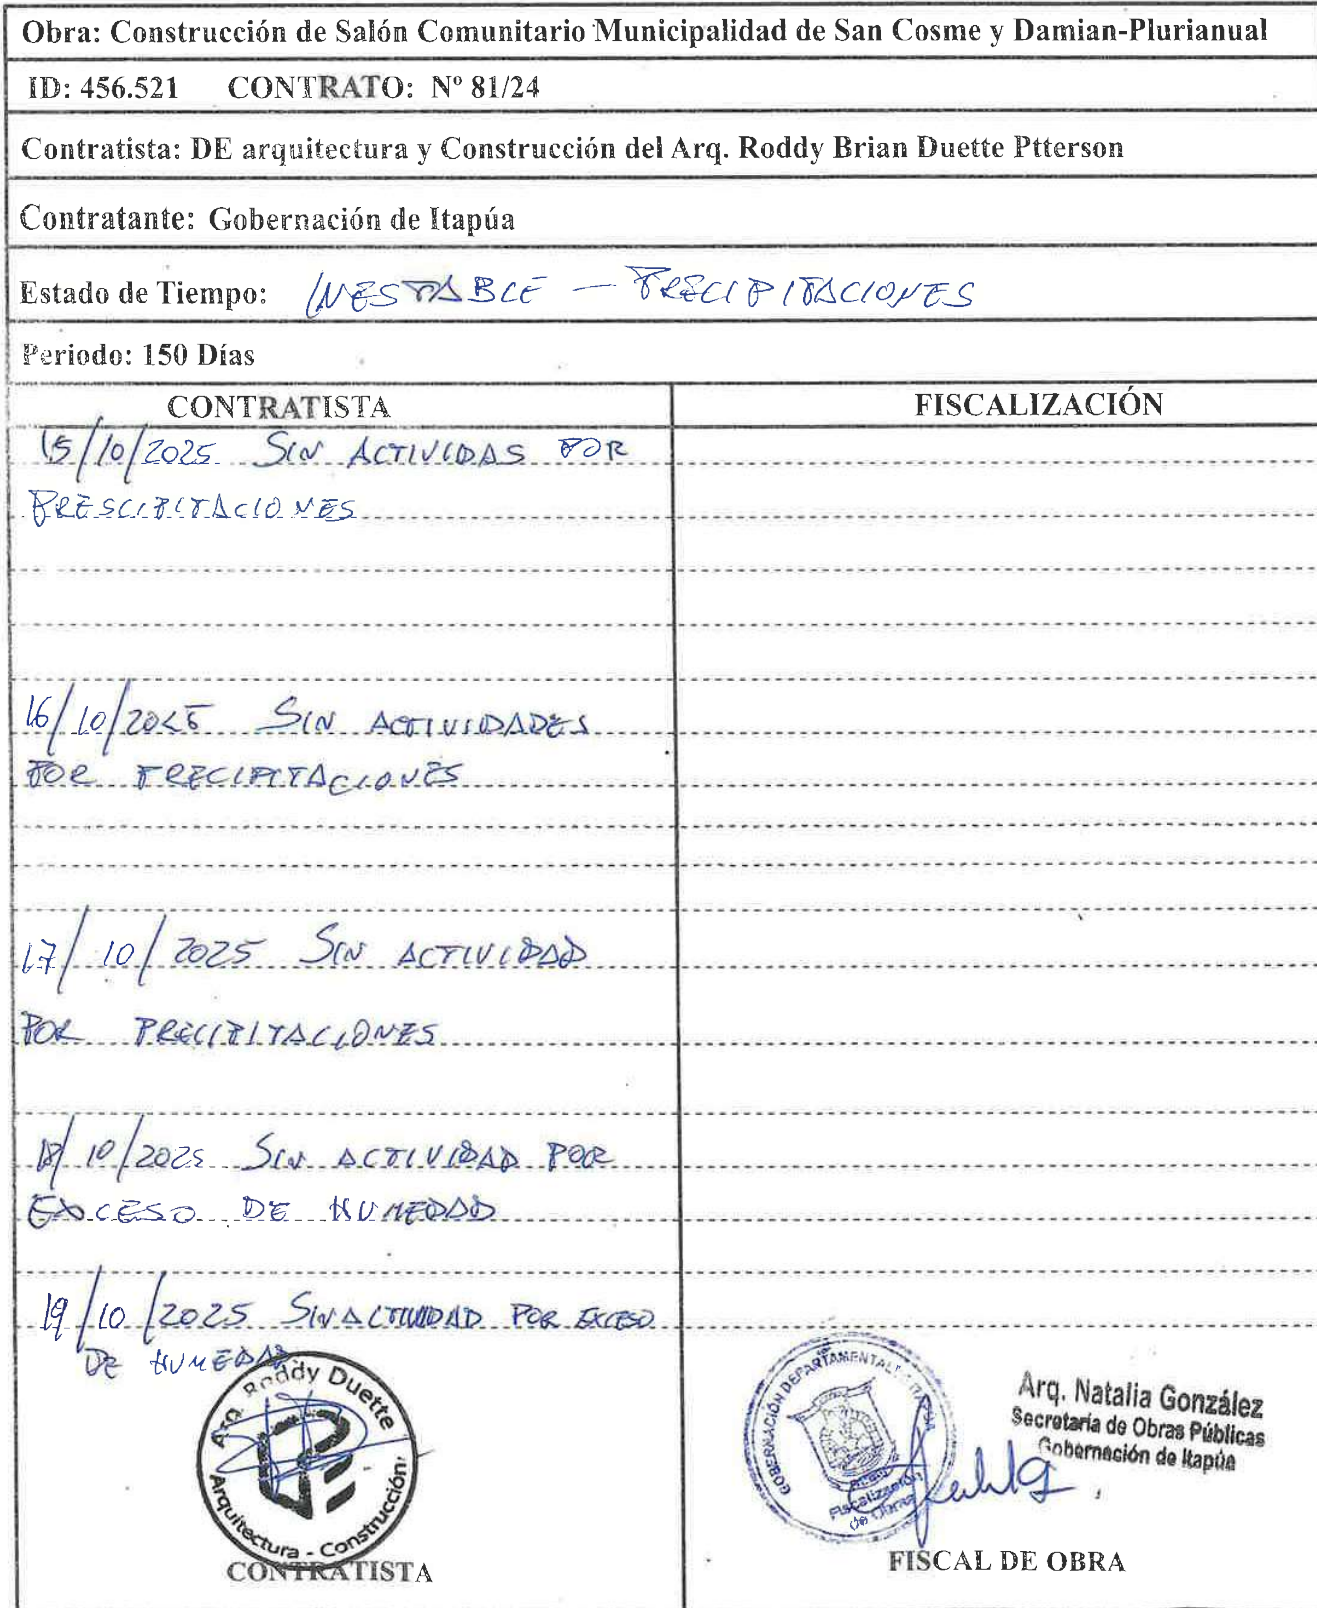 Obra: Construcción de Salón Comunitario Municipalidad de San Cosme y Damian-Plurianual
ID: 456.521 CONTRATO: Nº 81/24
Contratista: DE arquitectura y Construcción del Arq. Roddy Brian Duette Ptterson
Contratante: Gobernación de Itapúa
Estado de Tiempo: INESTABLE — PRECIPITACIONES
Periodo: 150 Días
CONTRATISTA
FISCALIZACIÓN
15/10/2025 SIN ACTIVIDAS POR
PRESCIPITACIONES
16/10/2025 SIN ACTIVIDADES
POR PRECIPITACIONES
17/10/2025 SIN ACTIVIDAD
POR PRECIPITACIONES
18/10/2025 SIN ACTIVIDAD POR
EXCESO DE HUMEDAD
19/10/2025 SIN ACTIVIDAD POR EXCESO
DE HUMEDAD
Arq. Roddy Duette
Arquitectura - Construcción
CONTRATISTA
GOBERNACIÓN DEPARTAMENTAL ITAPÚA
Fiscalización
de Obras
Arq. Natalia González
Secretaria de Obras Públicas
Gobernación de Itapúa
FISCAL DE OBRA